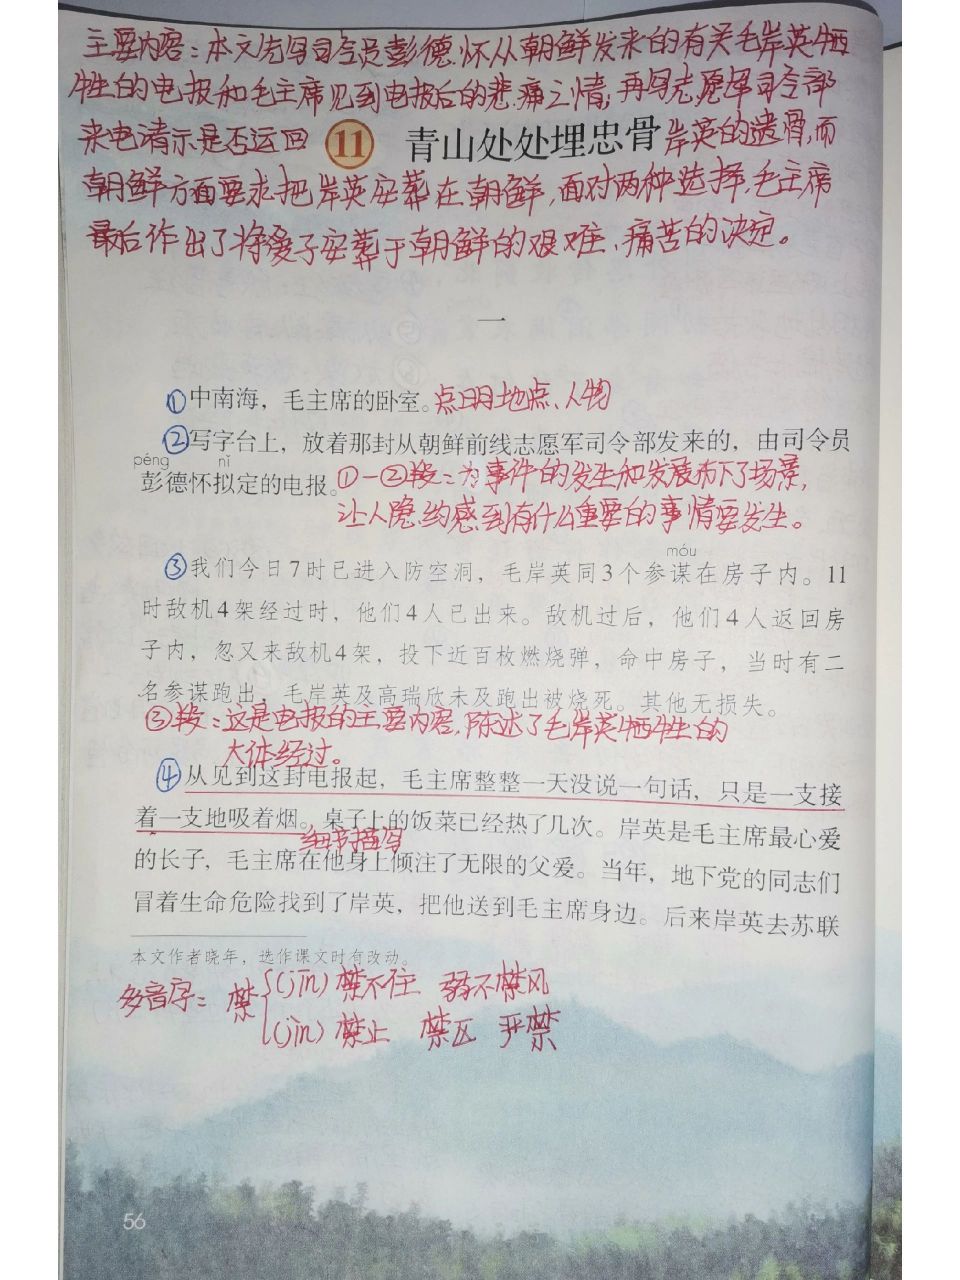 主要内容：本文先写司令员彭德怀从朝鲜发来的有关毛岸英牺
牲的电报和毛主席见到电报后的悲痛之情，再写志愿军司令部
来电请示是否运回 11 青山处处埋忠骨 岸英的遗骨，而
朝鲜方面要求把岸英安葬在朝鲜，面对两种选择，毛主席
最后作出了将爱子安葬于朝鲜的艰难、痛苦的决定。
一
①中南海，毛主席的卧室。点明地点、人物
②写字台上，放着那封从朝鲜前线志愿军司令部发来的，由司令员
péng nǐ
彭德怀拟定的电报。①—②段：为事件的发生和发展布下了场景，
让人隐约感到有什么重要的事情要发生。
móu
③我们今日7时已进入防空洞，毛岸英同3个参谋在房子内。11
时敌机4架经过时，他们4人已出来。敌机过后，他们4人返回房
子内，忽又来敌机4架，投下近百枚燃烧弹，命中房子，当时有二
名参谋跑出，毛岸英及高瑞欣未及跑出被烧死。其他无损失。
③段：这是电报的主要内容，陈述了毛岸英牺牲的
大体经过。
④从见到这封电报起，毛主席整整一天没说一句话，只是一支接
着一支地吸着烟。桌子上的饭菜已经热了几次。岸英是毛主席最心爱
细节描写
的长子，毛主席在他身上倾注了无限的父爱。当年，地下党的同志们
冒着生命危险找到了岸英，把他送到毛主席身边。后来岸英去苏联
本文作者晓年，选作课文时有改动。
多音字：禁 (jīn) 禁不住 弱不禁风
(jìn) 禁止 禁区 严禁
56